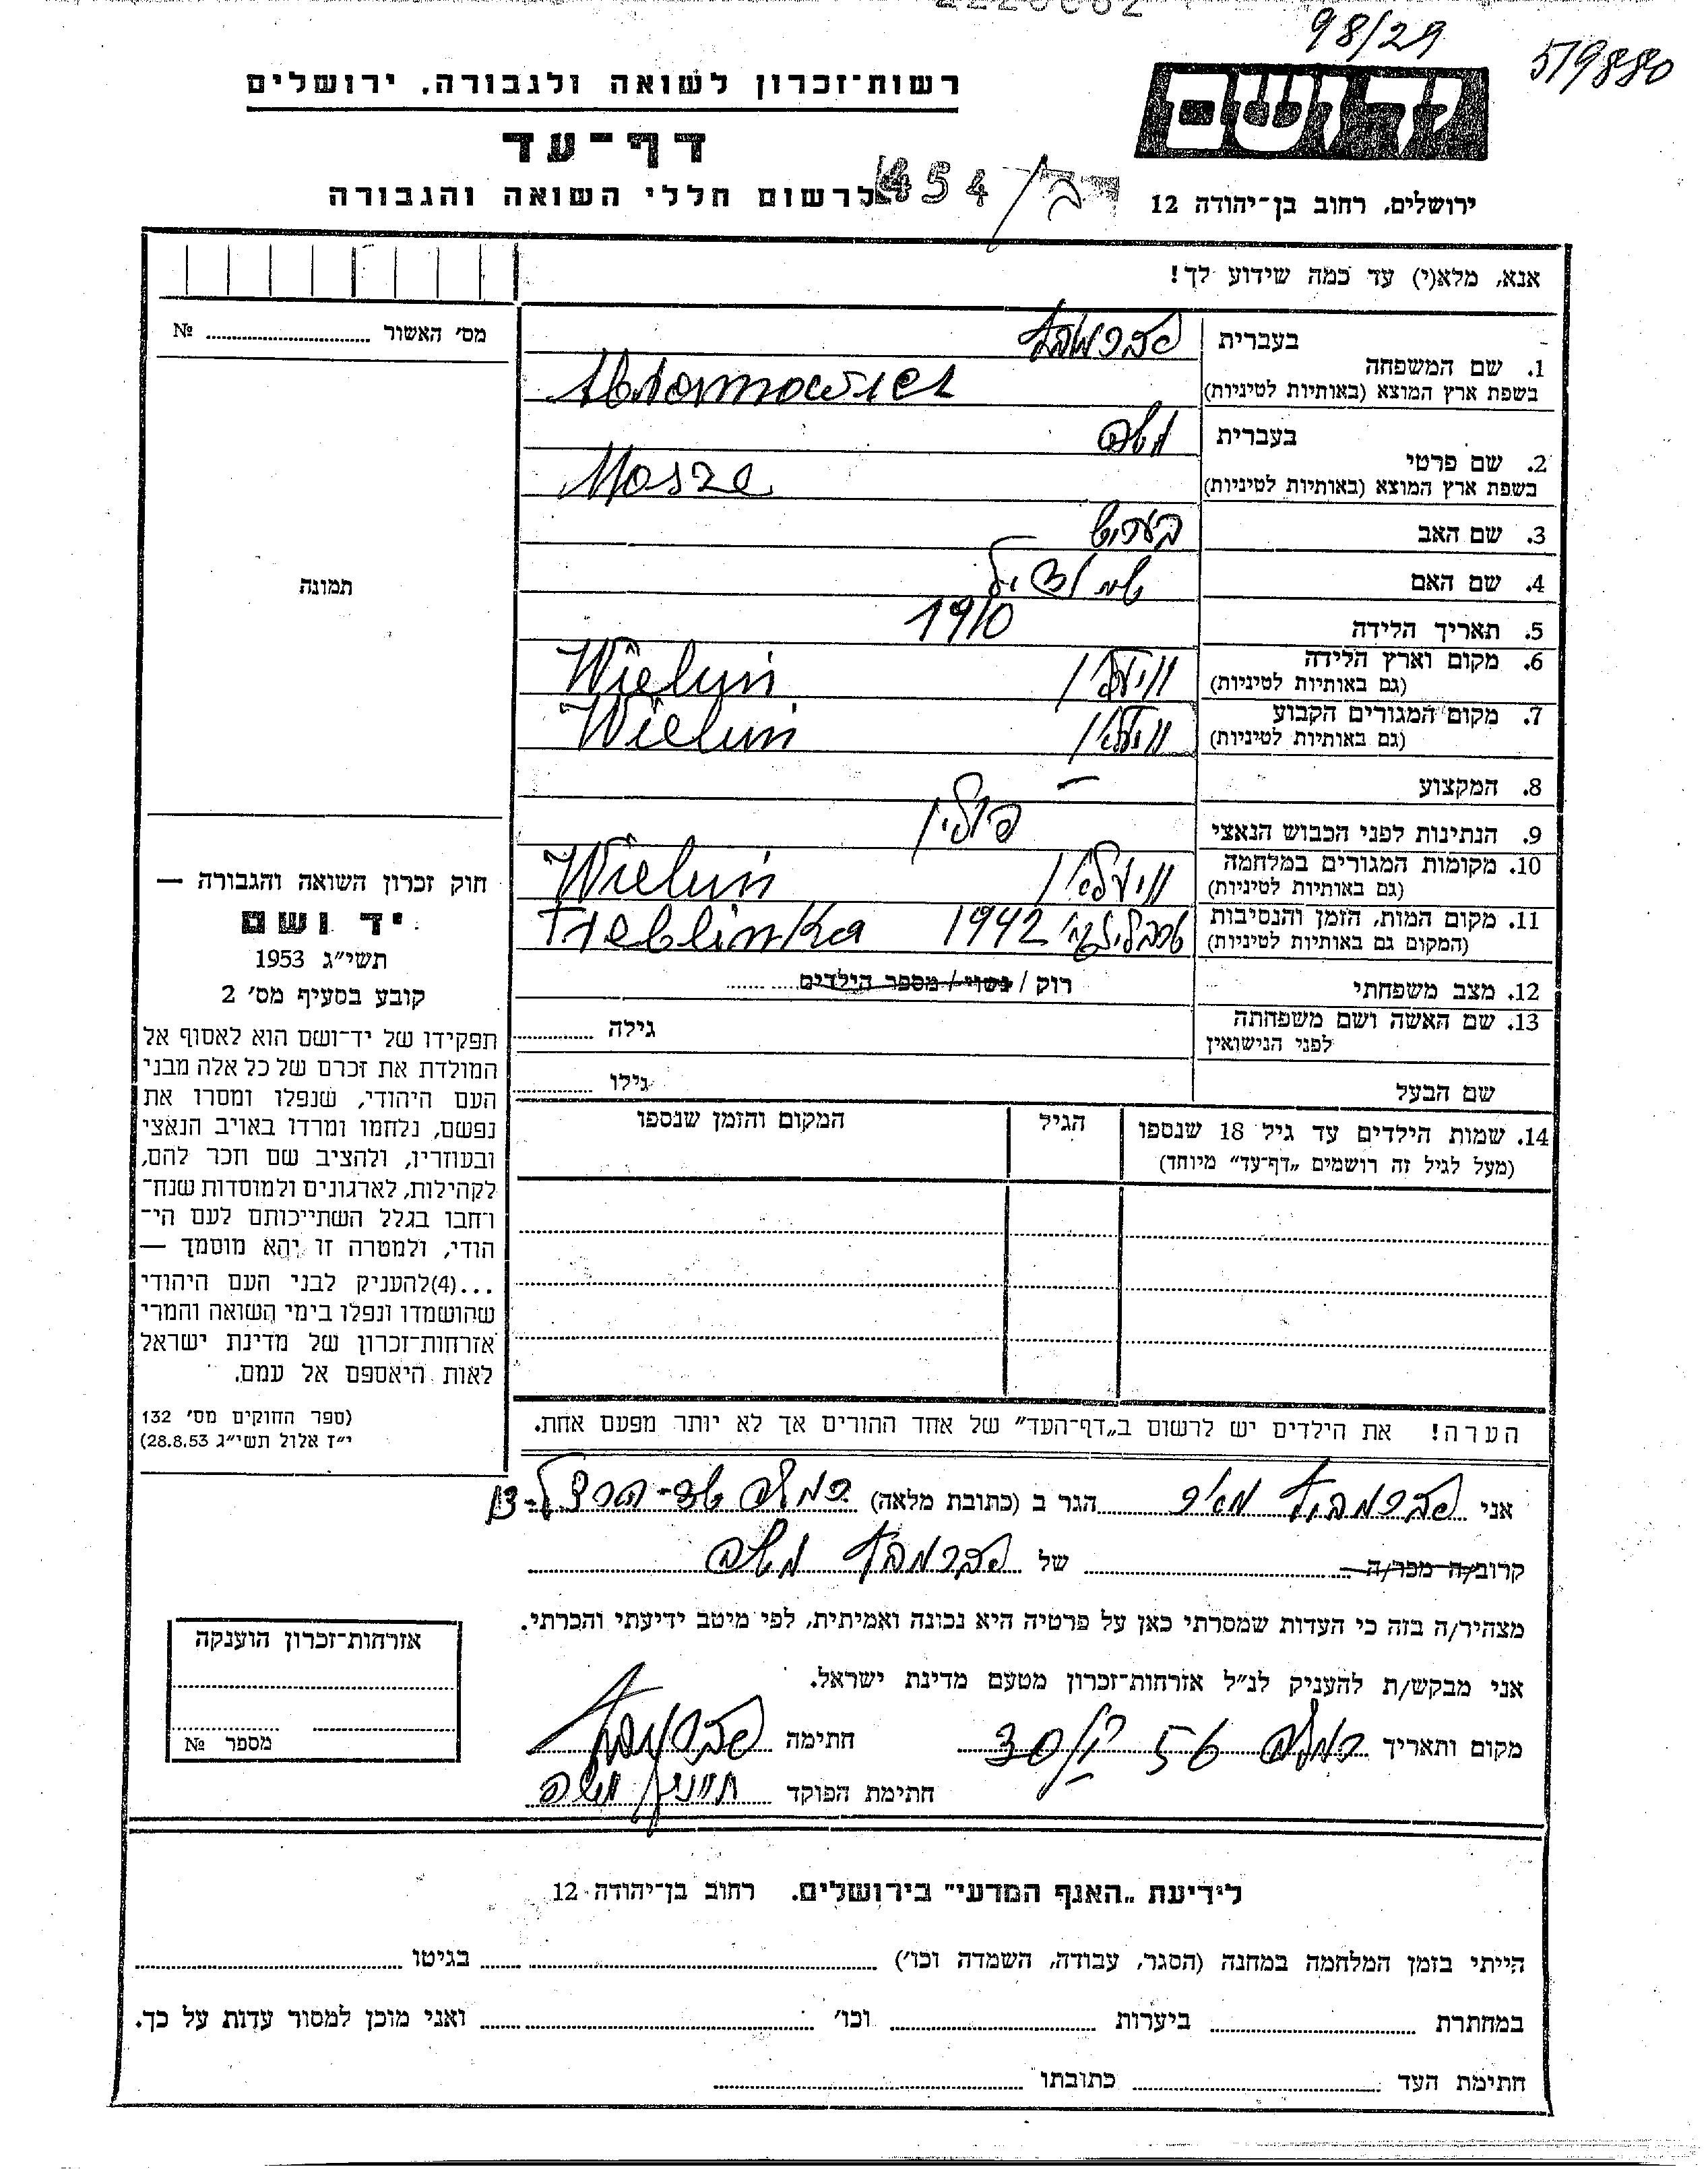 98/29
519880
רשות־זכרון לשואה ולגבורה, ירושלים
יד ושם
דף־עד
לרשום חללי השואה והגבורה
454
ירושלים, רחוב בן־יהודה 12
אנא, מלא(י) עד כמה שידוע לך!
מס׳ האשור № 
1. שם המשפחה
בעברית אברמוביץ
בשפת ארץ המוצא (באותיות לטיניות) Abramowicz
2. שם פרטי
בעברית משה
בשפת ארץ המוצא (באותיות לטיניות) Mosze
3. שם האב
4. שם האם
5. תאריך הלידה 1910
6. מקום וארץ הלידה וויעלון Wieluń
(גם באותיות לטיניות)
7. מקום המגורים הקבוע וויעלון Wieluń
(גם באותיות לטיניות)
8. המקצוע —
9. הנתינות לפני הכבוש הנאצי פולין
10. מקומות המגורים במלחמה וויעלון Wieluń
(גם באותיות לטיניות)
11. מקום המות, הזמן והנסיבות 1942 Treblinka
(המקום גם באותיות לטיניות)
12. מצב משפחתי רוק / נשוי / מספר הילדים
13. שם האשה ושם משפחתה גילה
לפני הנישואין
שם הבעל גילו
14. שמות הילדים עד גיל 18 שנספו הגיל המקום והזמן שנספו
(מעל לגיל זה רושמים „דף־עד" מיוחד)
הערה! את הילדים יש לרשום ב„דף־העד" של אחד ההורים אך לא יותר מפעם אחת.
תמונה
חוק זכרון השואה והגבורה —
יד ושם
תשי״ג 1953
קובע בסעיף מס׳ 2
תפקידו של יד־ושם הוא לאסוף אל
המולדת את זכרם של כל אלה מבני
העם היהודי, שנפלו ומסרו את
נפשם, נלחמו ומרדו באויב הנאצי
ובעוזריו, ולהציב שם וזכר להם,
לקהילות, לארגונים ולמוסדות שנח־
רחבו בגלל השתייכותם לעם הי־
הודי, ולמטרה זו יהא מוסמך —
...(4)להעניק לבני העם היהודי
שהושמדו ונפלו בימי השואה והמרי
אזרחות־זכרון של מדינת ישראל
לאות היאספם אל עמם.
(ספר החוקים מס׳ 132
י״ז אלול תשי״ג 28.8.53)
אני אברמוביץ מאיר הגר ב (כתובת מלאה) רמלה
קרוב/ה מכר/ה של אברמוביץ משה
מצהיר/ה בזה כי העדות שמסרתי כאן על פרטיה היא נכונה ואמיתית, לפי מיטב ידיעתי והכרתי.
אני מבקש/ת להעניק לנ״ל אזרחות־זכרון מטעם מדינת ישראל.
מקום ותאריך רמלה 56 30 חתימה אברמוביץ
חתימת הפוקד משה
אזרחות־זכרון הוענקה
מספר №
לידיעת „האגף המדעי" בירושלים. רחוב בן־יהודה 12
הייתי בזמן המלחמה במחנה (הסגר, עבודה, השמדה וכו׳) בגיטו
במחתרת ביערות וכו׳ ואני מוכן למסור עדות על כך.
חתימת העד כתובתו